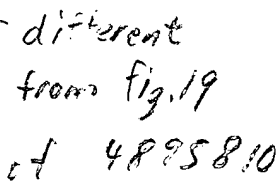 - different
from fig. 19
of 4895810